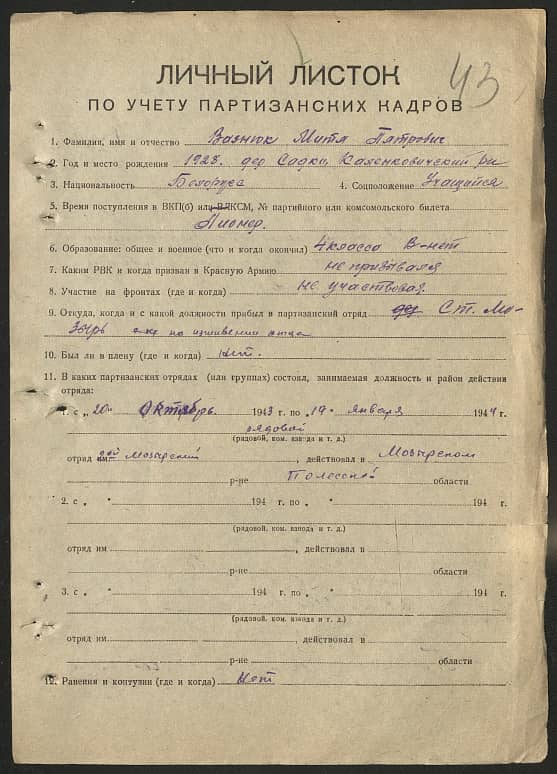 43
ЛИЧНЫЙ ЛИСТОК
ПО УЧЕТУ ПАРТИЗАНСКИХ КАДРОВ
1. Фамилия, имя и отчество Вазнюк Митя Пятрович
2. Год и место рождения 1928. дер Садки, Каленковичский р-н
3. Национальность Белорус 4. Соцположение Учащийся
5. Время поступления в ВКП(б) или ВЛКСМ, № партийного или комсомольского билета
Пионер.
6. Образование: общее и военное (что и когда окончил) 4 класса В-нет
7. Каким РВК и когда призван в Красную Армию не призывался
8. Участие на фронтах (где и когда) не участвовал.
9. Откуда, когда и с какой должности прибыл в партизанский отряд Ст. Мо-
зырь на иждивении отца
10. Был ли в плену (где и когда) нет.
11. В каких партизанских отрядах (или группах) состоял, занимаемая должность и район действия
отряда:
1. с „20" Октябрь 1943 г. по „19" января 1944 г.
рядовой
(рядовой, ком. взвода и т. д.)
отряд им Мозырский, действовал в Мозырском
р-не Полесской области
2. с „ " 194 г. по „ " 194 г.
(рядовой, ком. взвода и т. д.)
отряд им , действовал в
р-не области
3. с „ " 194 г. по „ " 194 г.
(рядовой, ком. взвода и т. д.)
отряд им , действовал в
р-не области
12. Ранения и контузии (где и когда) Нет